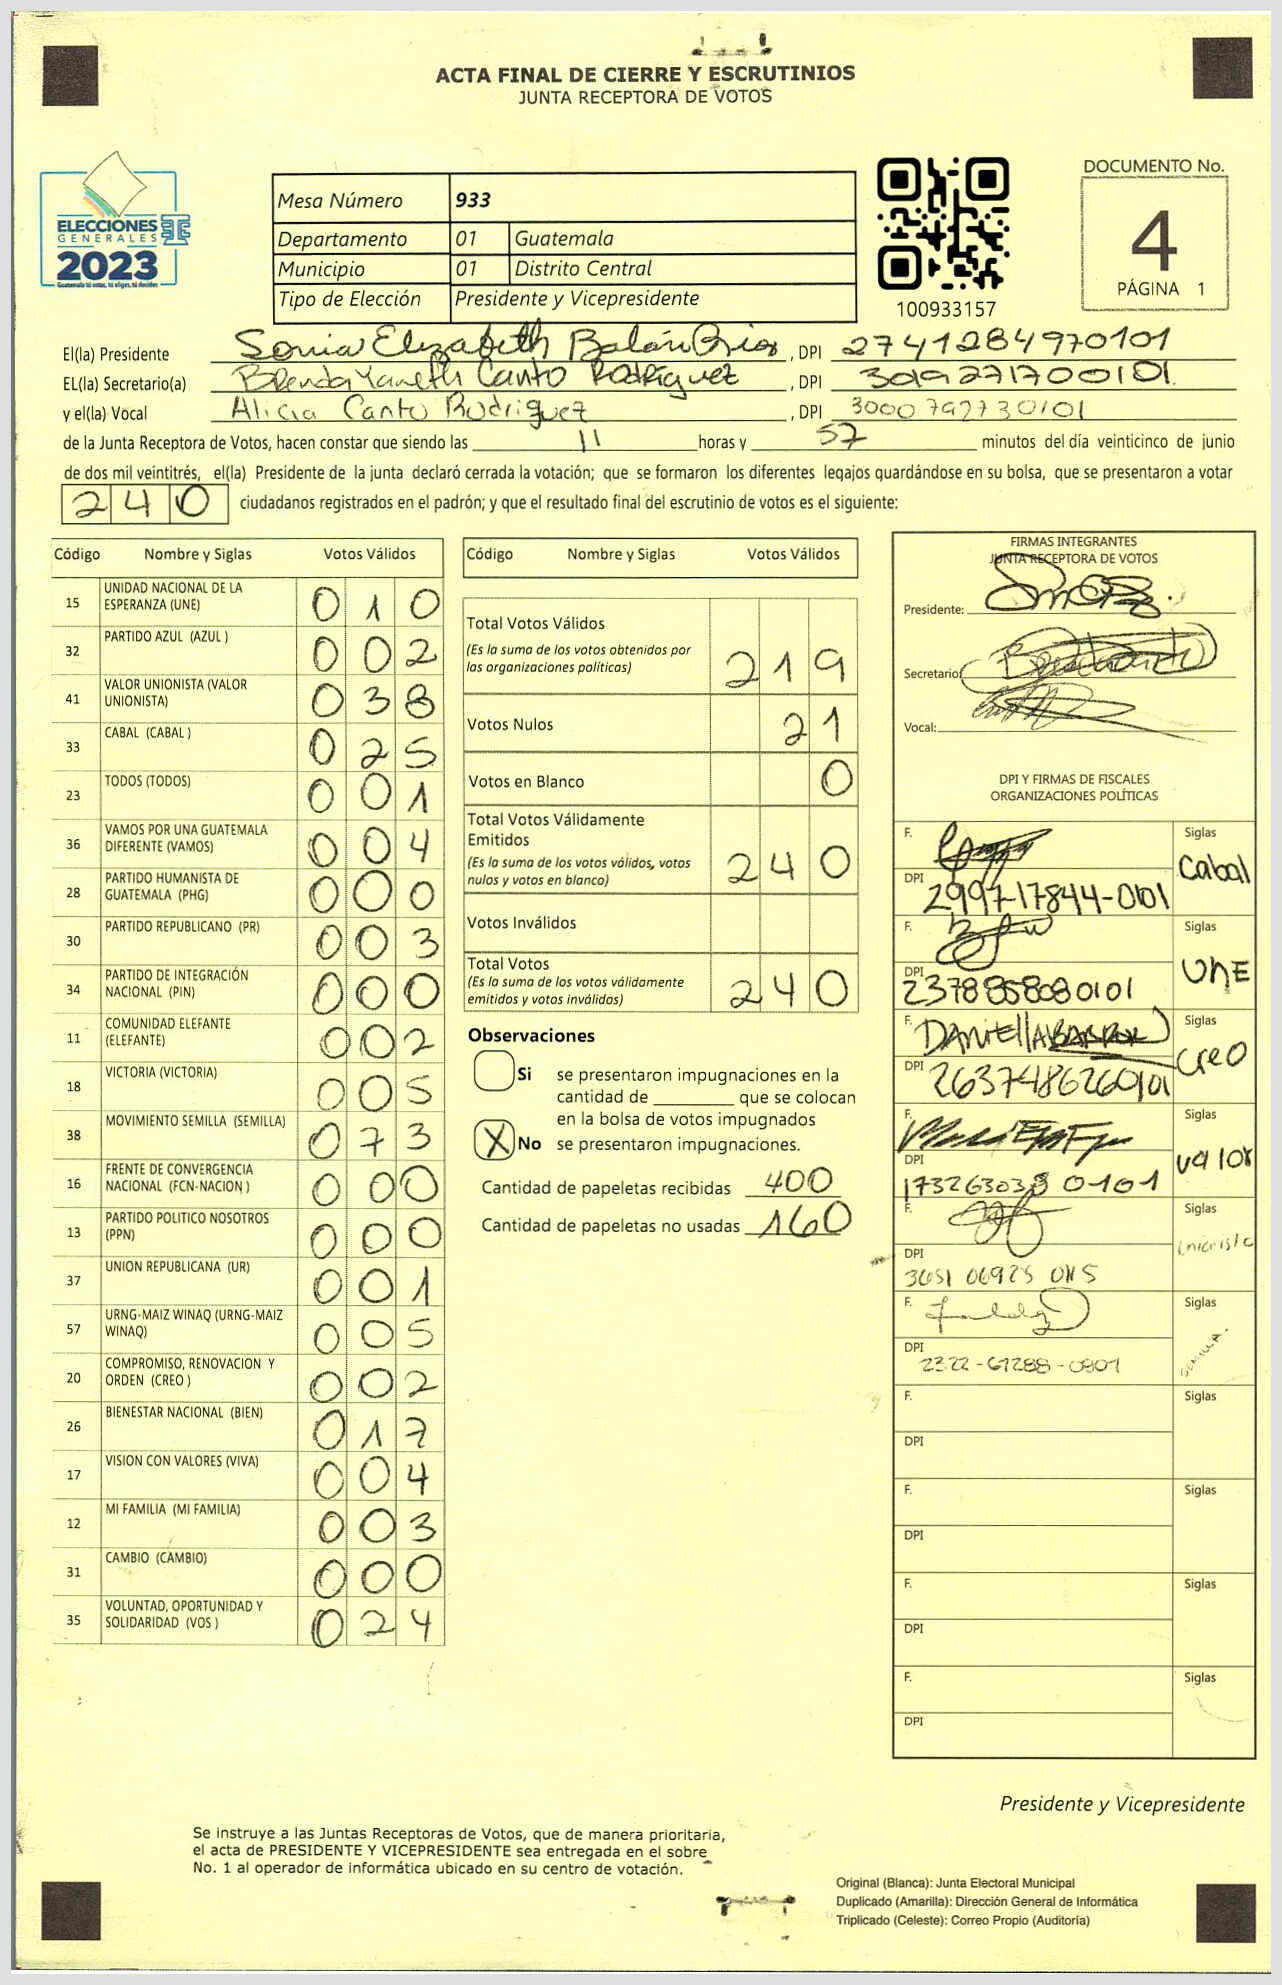 ACTA FINAL DE CIERRE Y ESCRUTINIOS
JUNTA RECEPTORA DE VOTOS
ELECCIONES
GENERALES
2023
Guatemala tú votas, tú eliges, tú decides
Mesa Número 933
Departamento 01 Guatemala
Municipio 01 Distrito Central
Tipo de Elección Presidente y Vicepresidente
100933157
DOCUMENTO No.
4
PÁGINA 1
El(la) Presidente Sonia Elizabeth Balán Rios, DPI 2741284970101
EL(la) Secretario(a) Brenda Yaneth Canto Rodríguez, DPI 3019271700101
y el(la) Vocal Alicia Canto Rodriguez, DPI 3000792730101
de la Junta Receptora de Votos, hacen constar que siendo las 11 horas y 57 minutos del día veinticinco de junio
de dos mil veintitrés, el(la) Presidente de la junta declaró cerrada la votación; que se formaron los diferentes legajos guardándose en su bolsa, que se presentaron a votar
240 ciudadanos registrados en el padrón; y que el resultado final del escrutinio de votos es el siguiente:
Código Nombre y Siglas Votos Válidos
15 UNIDAD NACIONAL DE LA ESPERANZA (UNE) 010
32 PARTIDO AZUL (AZUL ) 002
41 VALOR UNIONISTA (VALOR UNIONISTA) 038
33 CABAL (CABAL ) 025
23 TODOS (TODOS) 001
36 VAMOS POR UNA GUATEMALA DIFERENTE (VAMOS) 004
28 PARTIDO HUMANISTA DE GUATEMALA (PHG) 000
30 PARTIDO REPUBLICANO (PR) 003
34 PARTIDO DE INTEGRACIÓN NACIONAL (PIN) 000
11 COMUNIDAD ELEFANTE (ELEFANTE) 002
18 VICTORIA (VICTORIA) 005
38 MOVIMIENTO SEMILLA (SEMILLA) 073
16 FRENTE DE CONVERGENCIA NACIONAL (FCN-NACION ) 000
13 PARTIDO POLITICO NOSOTROS (PPN) 000
37 UNION REPUBLICANA (UR) 001
57 URNG-MAIZ WINAQ (URNG-MAIZ WINAQ) 005
20 COMPROMISO, RENOVACION Y ORDEN (CREO ) 002
26 BIENESTAR NACIONAL (BIEN) 017
17 VISION CON VALORES (VIVA) 004
12 MI FAMILIA (MI FAMILIA) 003
31 CAMBIO (CAMBIO) 000
35 VOLUNTAD, OPORTUNIDAD Y SOLIDARIDAD (VOS ) 024
Código Nombre y Siglas Votos Válidos
Total Votos Válidos
(Es la suma de los votos obtenidos por
las organizaciones políticas) 219
Votos Nulos 21
Votos en Blanco 0
Total Votos Válidamente
Emitidos
(Es la suma de los votos válidos, votos
nulos y votos en blanco) 240
Votos Inválidos
Total Votos
(Es la suma de los votos válidamente
emitidos y votos inválidos) 240
Observaciones
Si se presentaron impugnaciones en la
cantidad de ________ que se colocan
en la bolsa de votos impugnados
X No se presentaron impugnaciones.
Cantidad de papeletas recibidas 400
Cantidad de papeletas no usadas 160
FIRMAS INTEGRANTES
JUNTA RECEPTORA DE VOTOS
Presidente:
Secretario:
Vocal:
DPI Y FIRMAS DE FISCALES
ORGANIZACIONES POLÍTICAS
F. Siglas Cabal
DPI 2997-17844-0101
F. Siglas UNE
DPI 2378858080101
F. DANIELLA Siglas Creo
DPI 2637486260101
F. Siglas valor
DPI 1732630380101
F. Siglas unionista
DPI 3651 06925 0115
F. Siglas SEMILLA.
DPI 2322-67288-0801
F. Siglas
DPI
F. Siglas
DPI
F. Siglas
DPI
F. Siglas
DPI
Presidente y Vicepresidente
Se instruye a las Juntas Receptoras de Votos, que de manera prioritaria,
el acta de PRESIDENTE Y VICEPRESIDENTE sea entregada en el sobre
No. 1 al operador de informática ubicado en su centro de votación.
Original (Blanca): Junta Electoral Municipal
Duplicado (Amarilla): Dirección General de Informática
Triplicado (Celeste): Correo Propio (Auditoría)